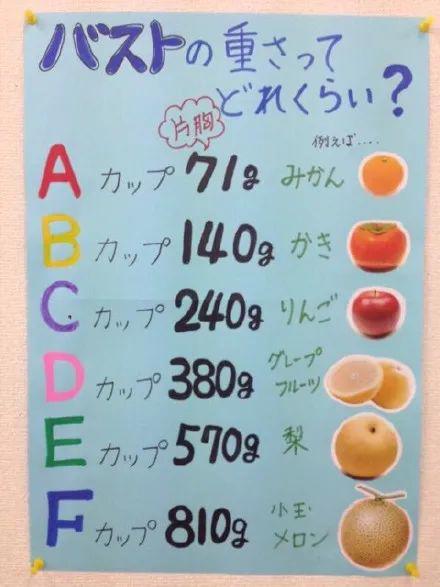 バストの重さって
どれくらい？
片胸
例えば....
A カップ 71g みかん
B カップ 140g かき
C カップ 240g りんご
D カップ 380g グレープ
フルーツ
E カップ 570g 梨
F カップ 810g 小玉
メロン